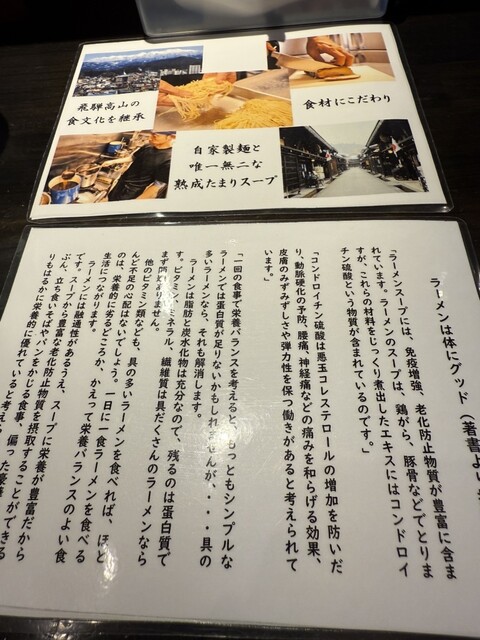 飛騨高山の
食文化を継承
食材にこだわり
自家製麺と
唯一無二な
熟成たまりスープ
ラーメンは体にグッド（著書より
「ラーメンスープには、免疫増強、老化防止物質が豊富に含ま
れています。ラーメンのスープは、鶏がら、豚骨などでとりま
すが、これらの材料をじっくり煮出したエキスにはコンドロイ
チン硫酸という物質が含まれているのです。」
「コンドロイチン硫酸は悪玉コレステロールの増加を防いだ
り、動脈硬化の予防、腰痛、神経痛などの痛みを和らげる効果、
皮膚のみずみずしさや弾力性を保つ働きがあると考えられて
います。」
「一回の食事で栄養バランスを考えると、もっともシンプルな
ラーメンでは蛋白質が足りないかもしれませんが、・・・具の
多いラーメンなら、それも解消します。
ラーメンは脂肪と炭水化物は充分なので、残るのは蛋白質で
す。ビタミン、ミネラル、繊維質は具だくさんのラーメンなら
まず問題ありません。
他のビタミン類なども、具の多いラーメンを食べれば、ほと
んど不足の心配はないでしょう。一日に一食ラーメンを食べる
のは、栄養的に劣るどころか、かえって栄養バランスのよい食
生活につながります。
ラーメンには融通性があるうえ、スープに栄養が豊富だから
です。スープから豊富な老化防止物質を摂取することができる
ぶん、立ち食いそばやパンをかじる食事、偏った豪華
りもはるかに栄養的に優れていると考え